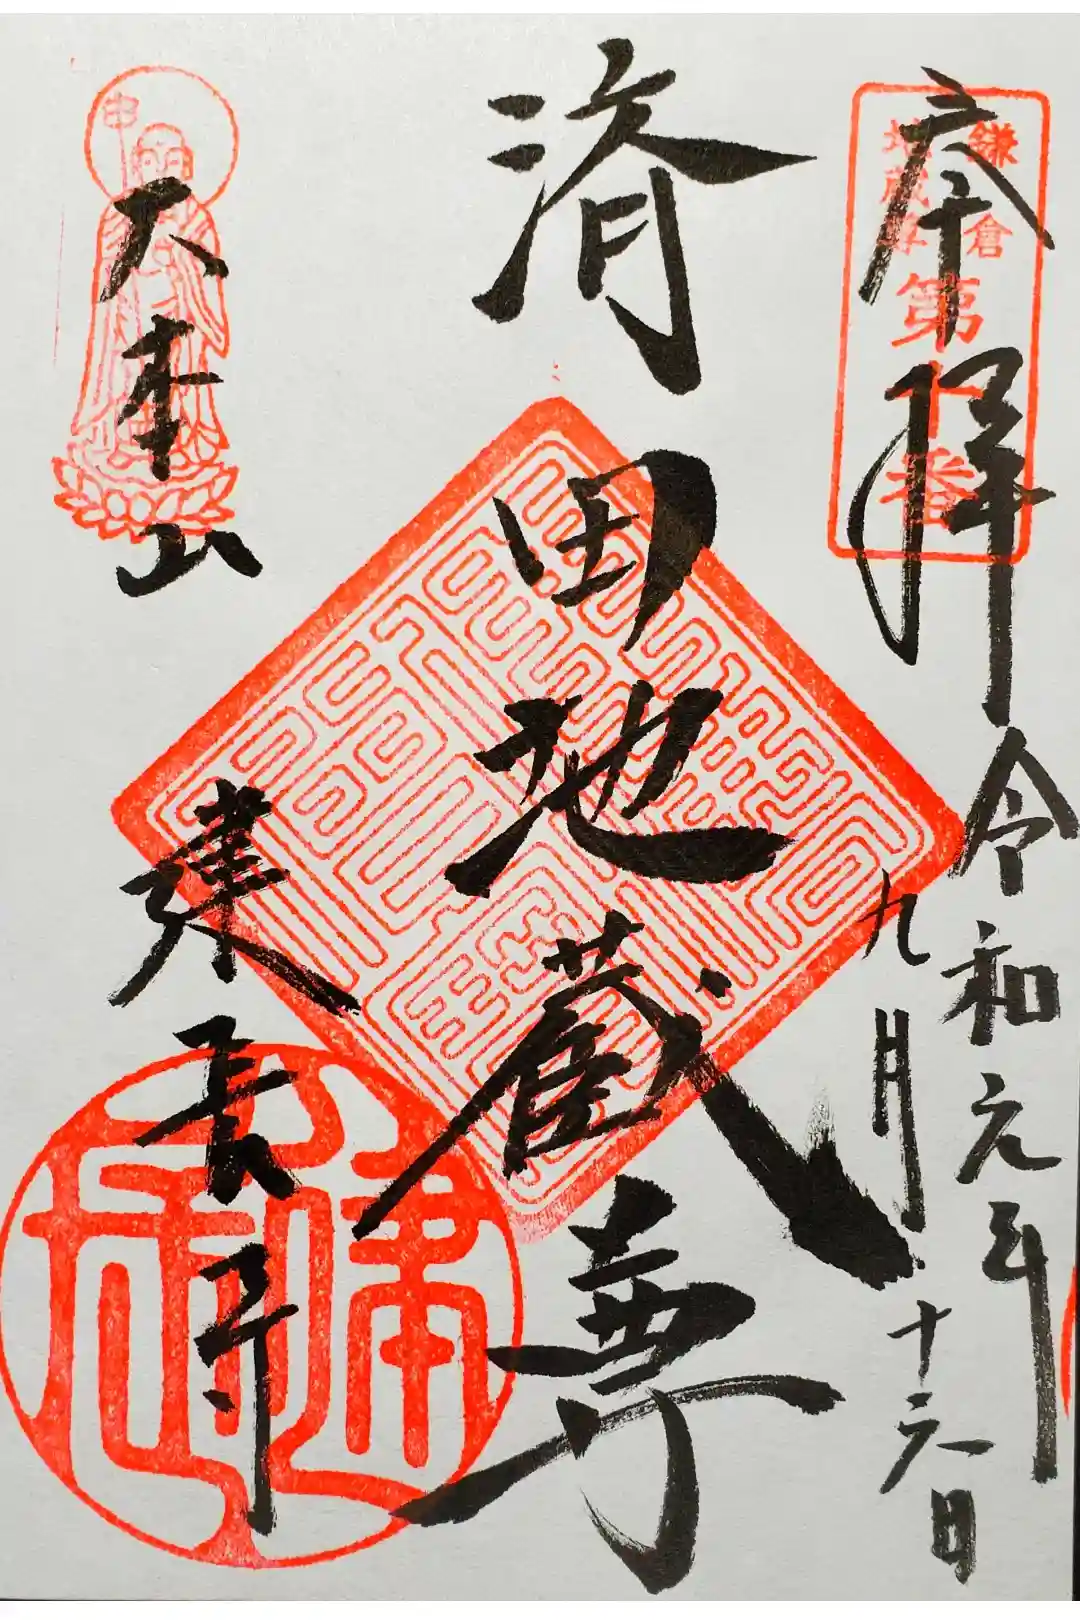 奉拝
令和元年
九月十六日
鎌倉
地蔵尊
第十番
済田地蔵尊
大本山
建長寺